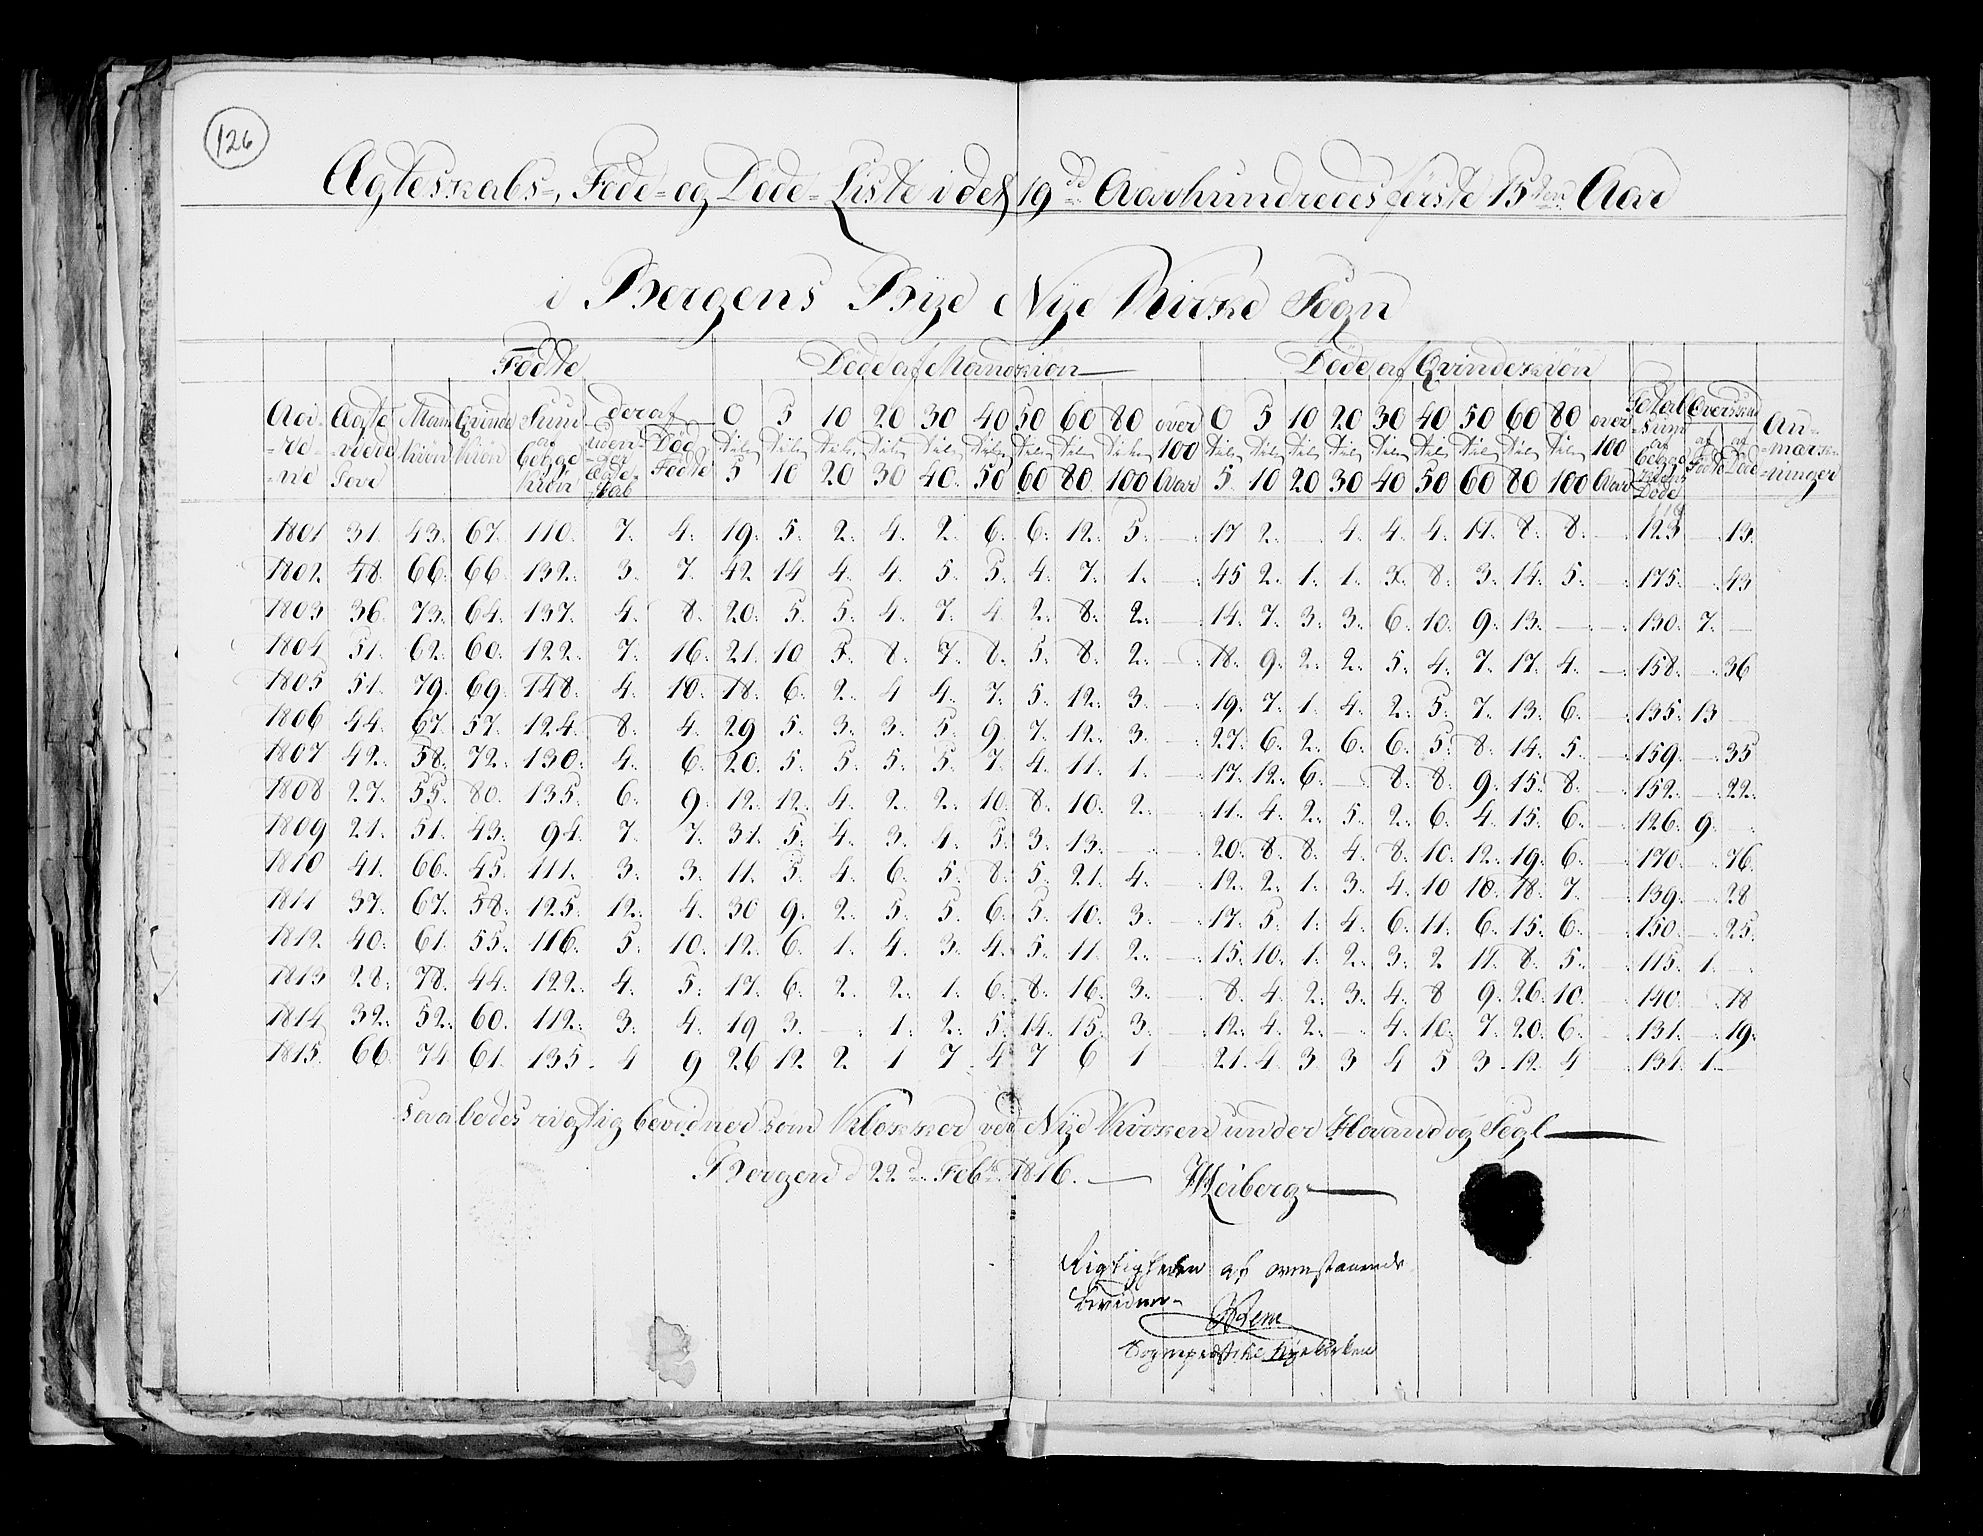 126
Ægteskabs-, Föde- og Döde-Liste i det 19de Aarhundredes første 15ten Aar
i Bergens Bye Nye Kirke Sogn
Födte Döde af Mandkiön Döde af Qvindekiön
Aarene Ægteviede Par Mandkiön Qvindekiön Sum af begge Kiön deraf Uden for Ægteskab Död Födte 0 til 5 5 til 10 10 til 20 20 til 30 30 til 40 40 til 50 50 til 60 60 til 80 80 til 100 over 100 Aar 0 til 5 5 til 10 10 til 20 20 til 30 30 til 40 40 til 50 50 til 60 60 til 80 80 til 100 over 100 Aar Total Sum af begge Kiöns Döde Overskud af Födte af Döde Anmærkninger
1801 31. 43. 67. 110. 7. 4. 19. 5. 2. 4. 2. 6. 6. 12. 5. — 17 2. — 4. 4. 4. 11. 8. 8. — 123 — 13.
1802 48. 66. 66. 132. 3. 7. 42 14 4. 4. 5. 5. 4. 7. 1. — 45 2. 1. 1. 3. 8. 3. 14. 5. — 175. — 43
1803 36. 73. 64. 137. 4. 8. 20. 5. 5. 4. 7. 4 2. 8. 2. — 14. 7. 3. 3. 6. 10. 9. 13. — — 130. 7. —
1804 51. 62. 60. 122. 7. 16. 21. 10 5. 8. 7. 8. 5. 8. 2. — 18. 9. 2. 2. 5. 4. 7. 17. 4. — 158. — 36
1805 51. 79. 69. 148. 4. 10. 18. 6. 2. 4 4. 7. 5. 12. 3. — 19. 7. 1. 4. 2. 5. 7. 13. 6. — 135. 13 —
1806 44. 67. 57. 124. 8. 4. 29 5. 3. 3. 5. 9. 7. 12. 3. — 27. 6. 2. 6. 6. 5. 8. 14. 5. — 159. — 35
1807 42. 58. 72. 130. 4. 6. 20. 5. 5. 5. 5. 7. 4. 11. 1. — 17. 12. 6. — 8. 8. 9. 15. 8. — 152. — 22.
1808 27. 55. 80. 135. 6. 9. 12. 12. 4. 2. 2. 10. 8. 10. 2. — 11. 4. 2. 5. 2. 6. 4. 15. 6. — 126. 9. —
1809 21. 51. 43. 94. 7. 7. 31. 5. 4. 3. 4. 5. 3. 13. — — 20. 8. 8. 4. 8. 10. 12. 19. 6. — 170. — 76.
1810 41. 66. 45. 111. 3. 3. 11. 5. 4. 6. 5. 8. 5. 21. 4. — 12. 2. 1. 3. 4. 10 10. 18. 7. — 139. — 28
1811 37. 67. 58. 125. 12. 4. 30 9. 2. 5. 5. 6. 5. 10. 3. — 17. 5. 1. 4. 6. 11. 6. 15. 6. — 150. — 25.
1812 40. 61. 55. 116. 5. 10. 12. 6. 1. 4. 3. 4. 5. 11. 2. — 15. 10. 1. 2. 3. 2 11. 8. 5. — 115. 1. —
1813 28. 78. 44. 122. 4. 5. 17. 6. 2. 2. 1. 6. 8. 16. 3. — 8. 4. 2. 3. 4. 8 9. 26. 10. — 140. — 18
1814 32. 52. 60. 112. 3. 4. 19 3. — 1. 2. 5. 14. 15. 3. — 12. 4. 2. — 4. 10. 7. 20. 6. — 131. — 19.
1815. 66. 74 61. 135. 4 9 26 12. 2. 1 7. 4 7 6 1 — 21. 4 3 3 4 5 3. 12. 4 — 134. 1. —
Saaledes rigtig bevidner som Klokker ved Nye Kirken under Haand og Segl
Bergen d 22d. Febr. 1816. — Heiberg
Rigtigheden af ovenstaaende
bevidner
Sognepræst til Nyekirken